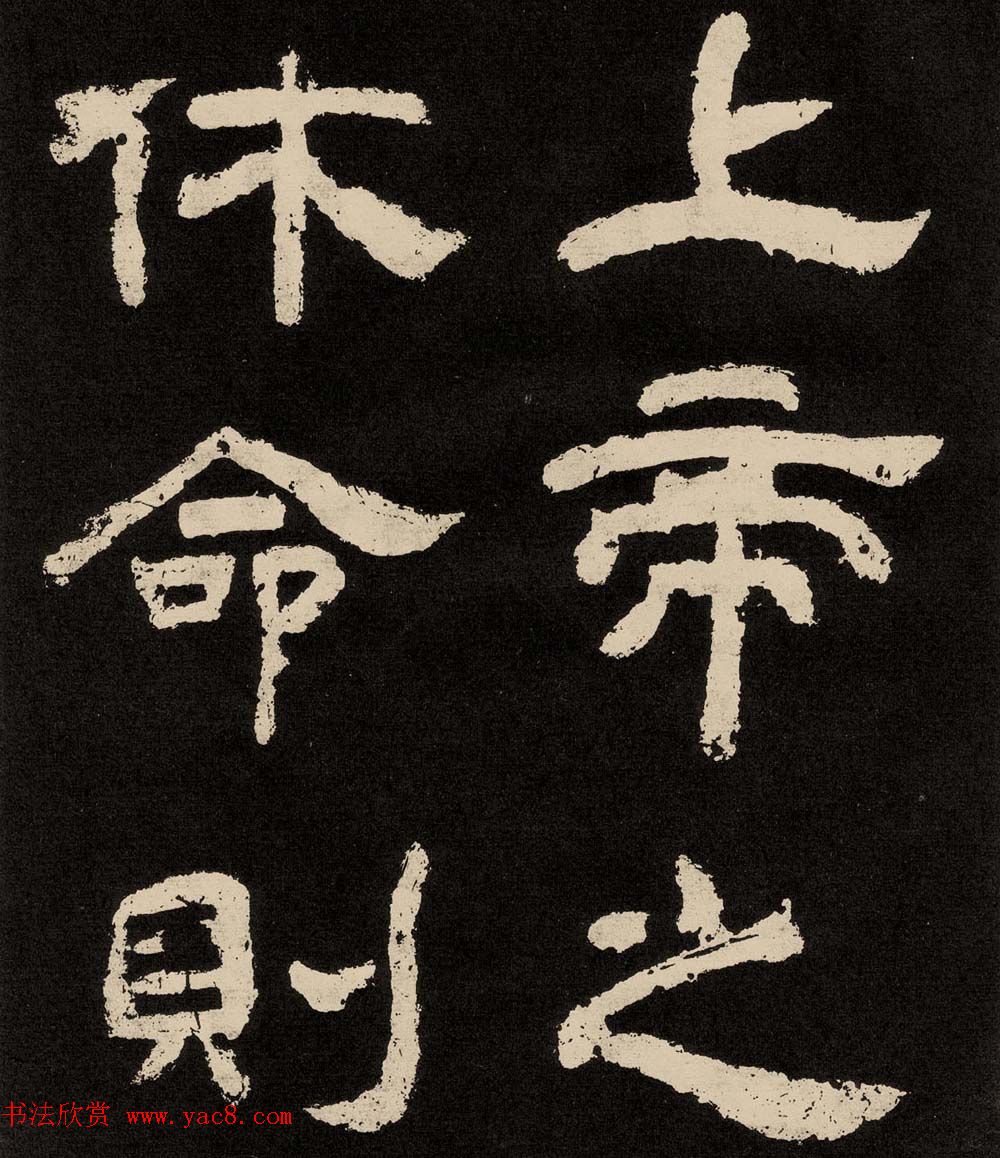 上帝之
休命則
书法欣赏 www.yac8.com